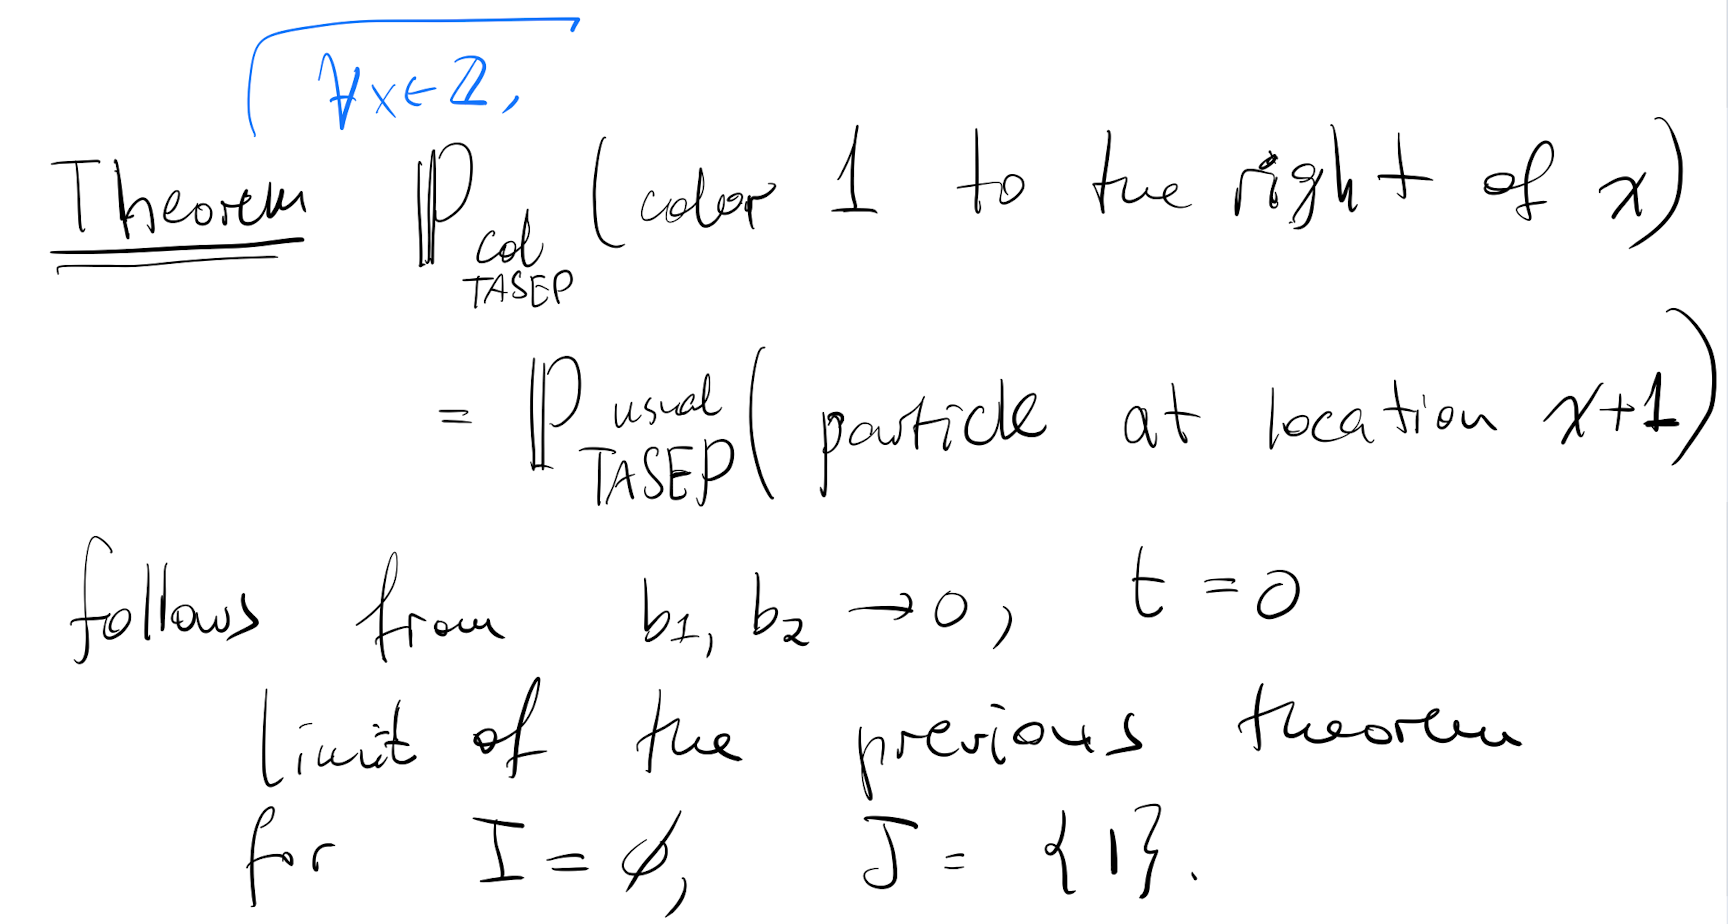 ∀x∈ℤ,
Theorem ℙ col TASEP (color 1 to the right of x)
= ℙ usual TASEP (particle at location x+1)
follows from b₁, b₂ → 0, t = 0
limit of the previous theorem
for I = ∅, J = {1}.